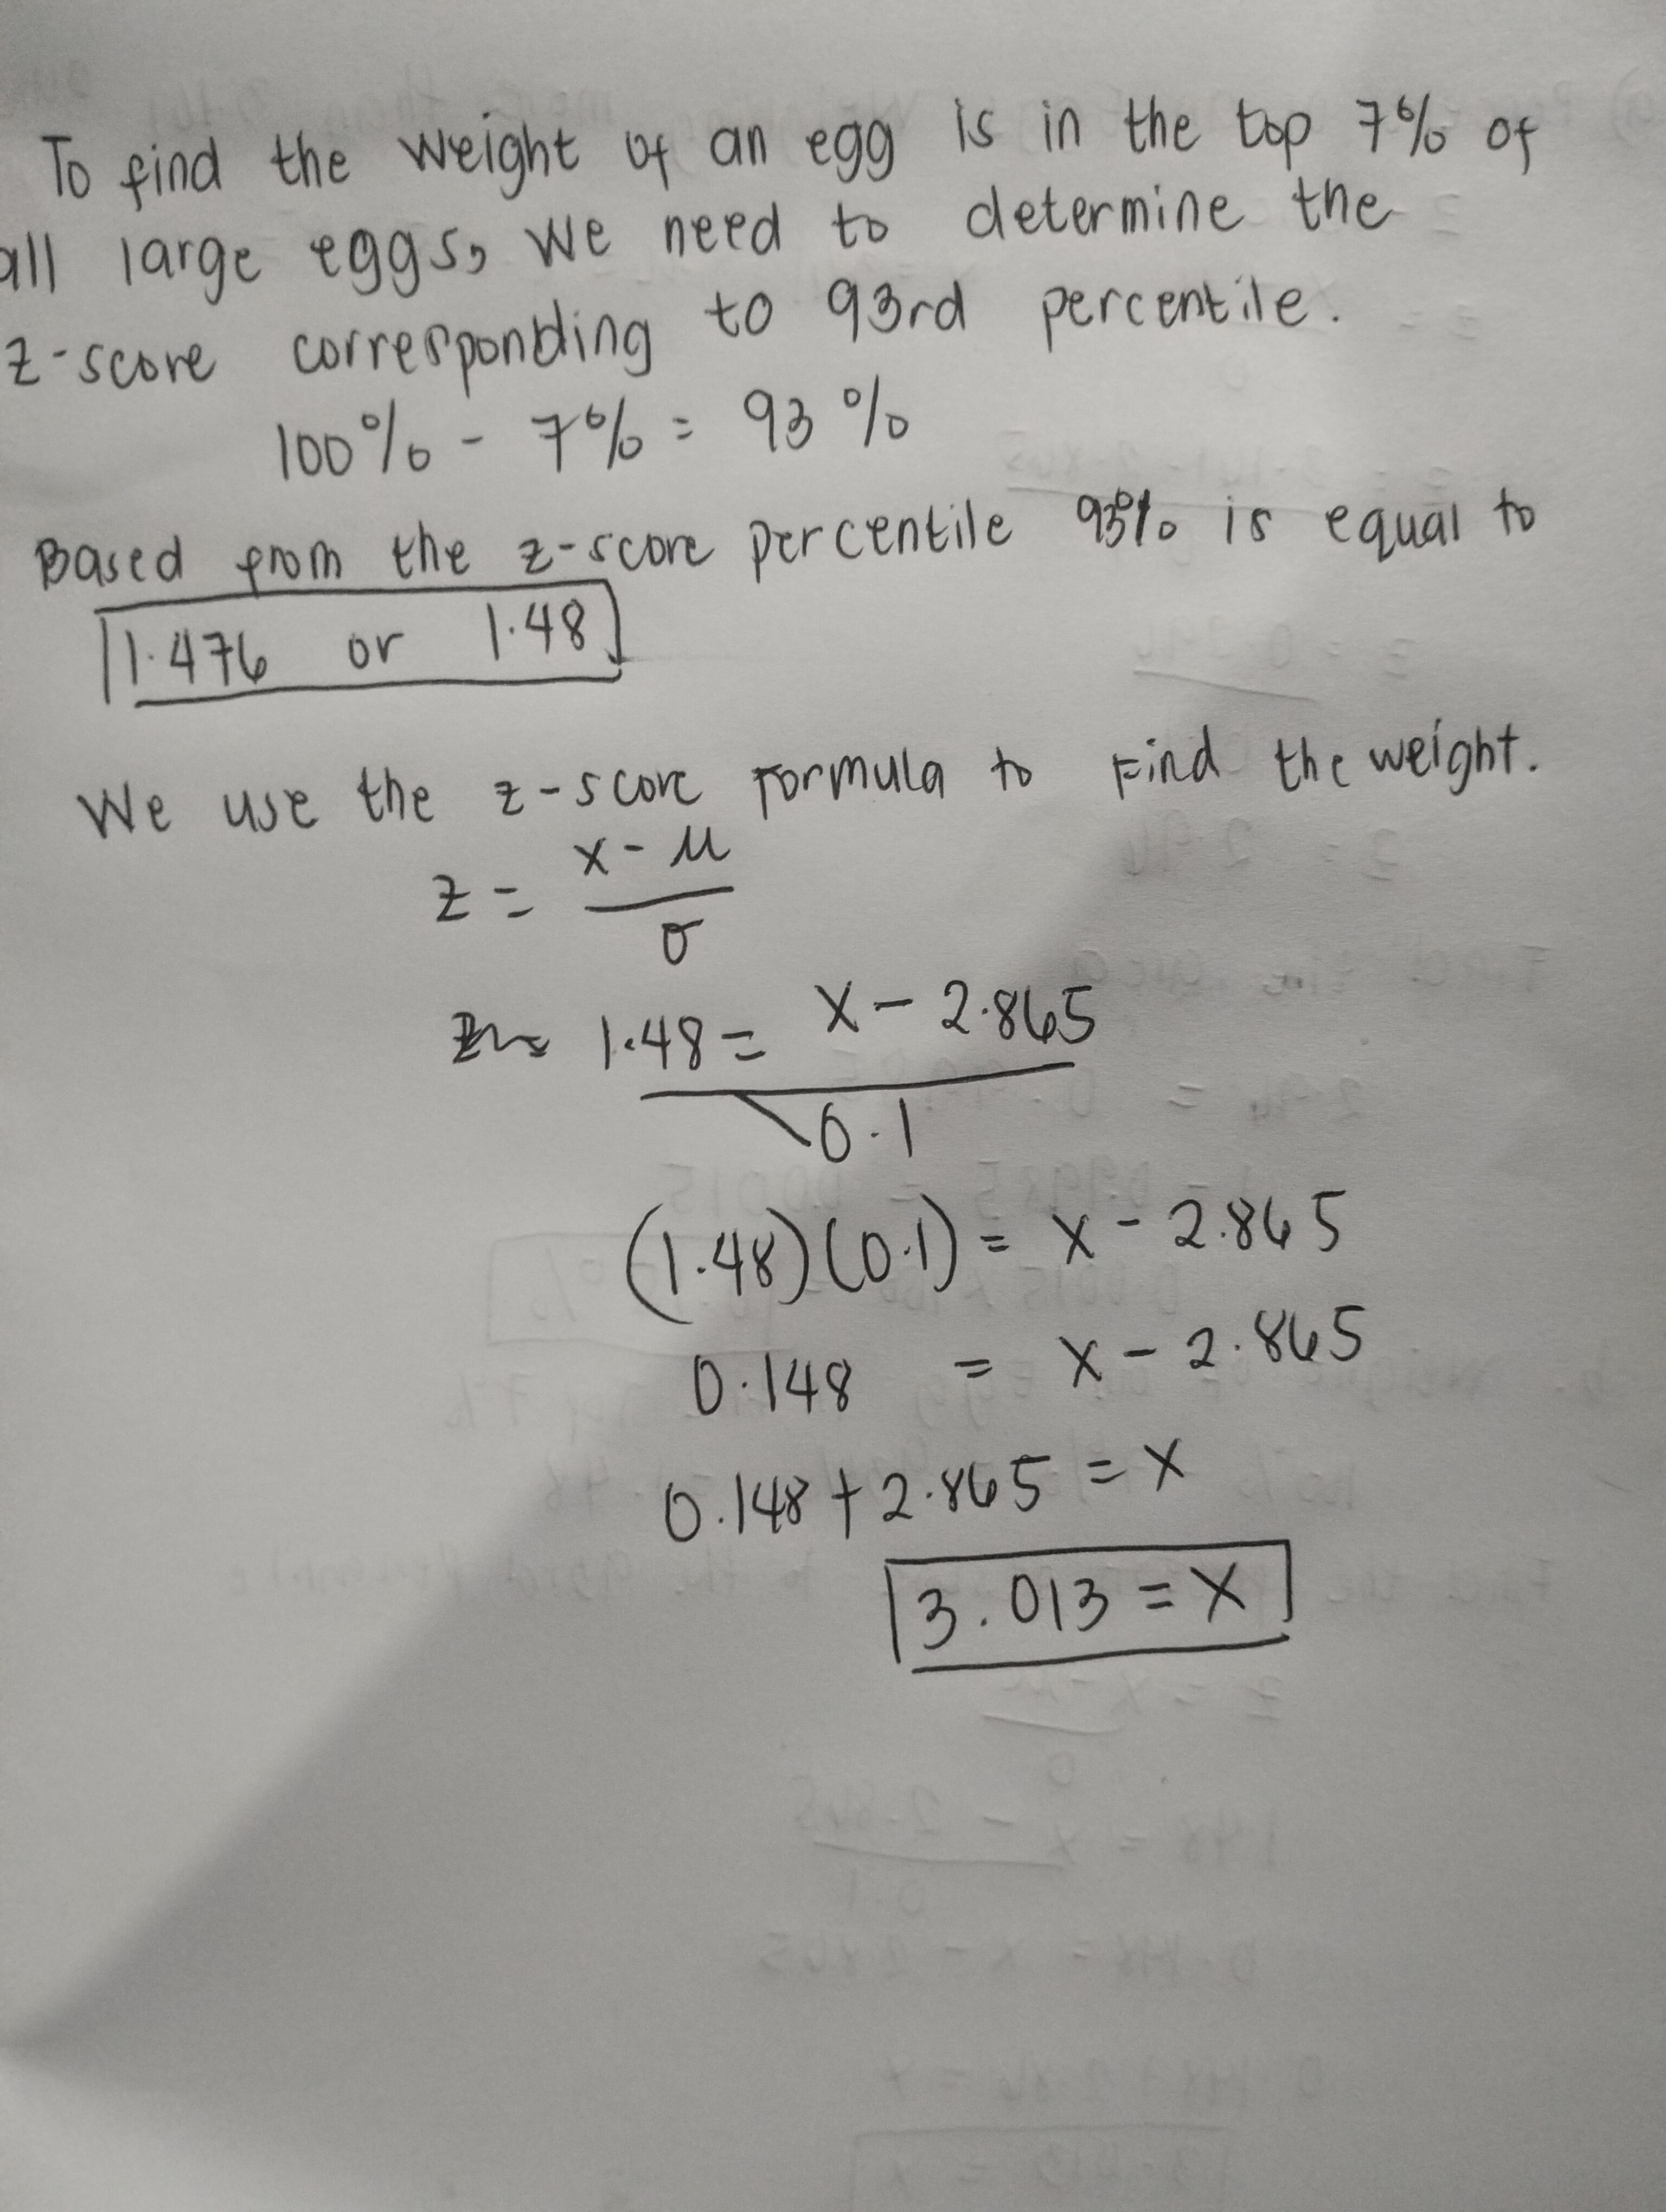 To find the weight of an egg is in the top 7% of
all large eggs, we need to determine the
z-score corresponding to 93rd percentile.
100% - 7% = 93%
Based from the z-score percentile 93% is equal to
1.476 or 1.48
We use the z-score formula to find the weight.
z = x - μ
σ
1.48 = x - 2.865
0.1
(1.48)(0.1) = x - 2.865
0.148 = x - 2.865
0.148 + 2.865 = x
3.013 = x